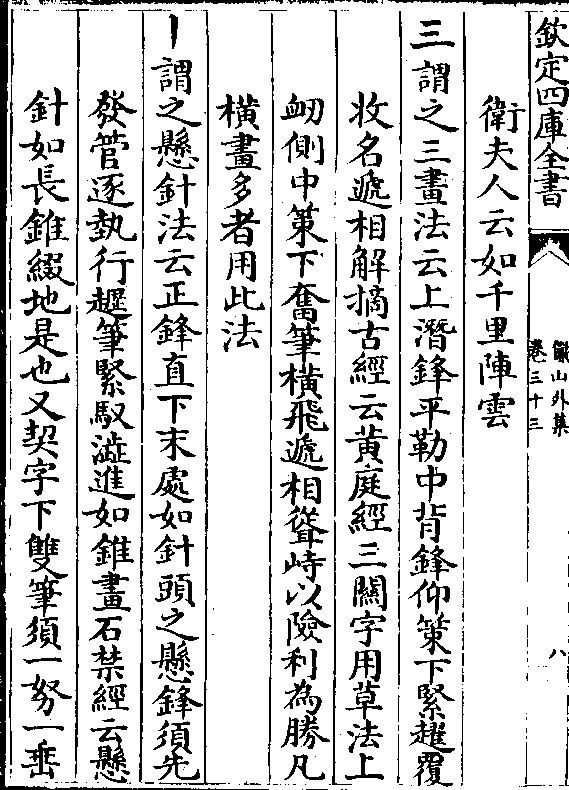 欽定四庫全書
巖山外集
卷三十三
八
衛夫人云如千里陣雲
三謂之三畫法云上潛鋒平勒中背鋒仰策下緊趯覆
收名遞相解摘古經云黃庭經三關字用草法上
衂側中策下奮筆橫飛遞相聳峙以險利為勝凡
橫畫多者用此法
丨謂之懸針法云正鋒直下末處如針頭之懸鋒須先
發管逐埶行趯筆緊馭澁進如錐畫石禁經云懸
針如長錐綴地是也又契字下雙筆須一努一垂